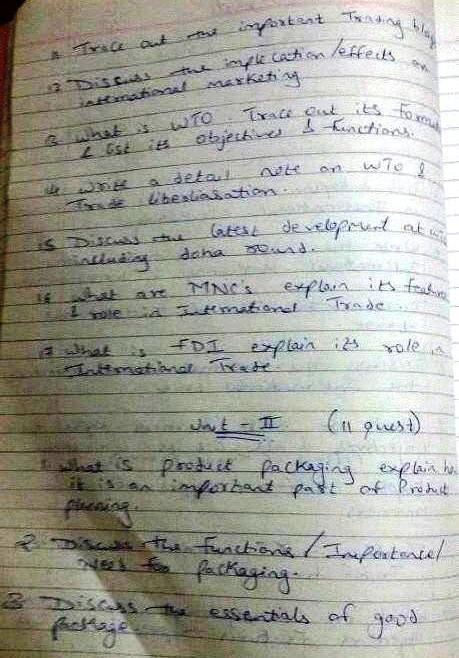 11 Trace out the important Trading bloc
12 Discuss the implication/effects on
international marketing
13 what is WTO. Trace out its Format
& list its objectives & functions.
14 write a detail note on WTO &
Trade liberliasation.
15 Discuss the latest development at
including doha round.
16 what are MNC's explain its feature
& role in International Trade
17 what is FDI explain its role in
International Trade.
Unit - II (11 quest)
1. what is product packaging explain how
it is an important part of Product
planning.
2 Discuss the functions / Importance/
need for packaging.
3 Discuss the essentials of good
package